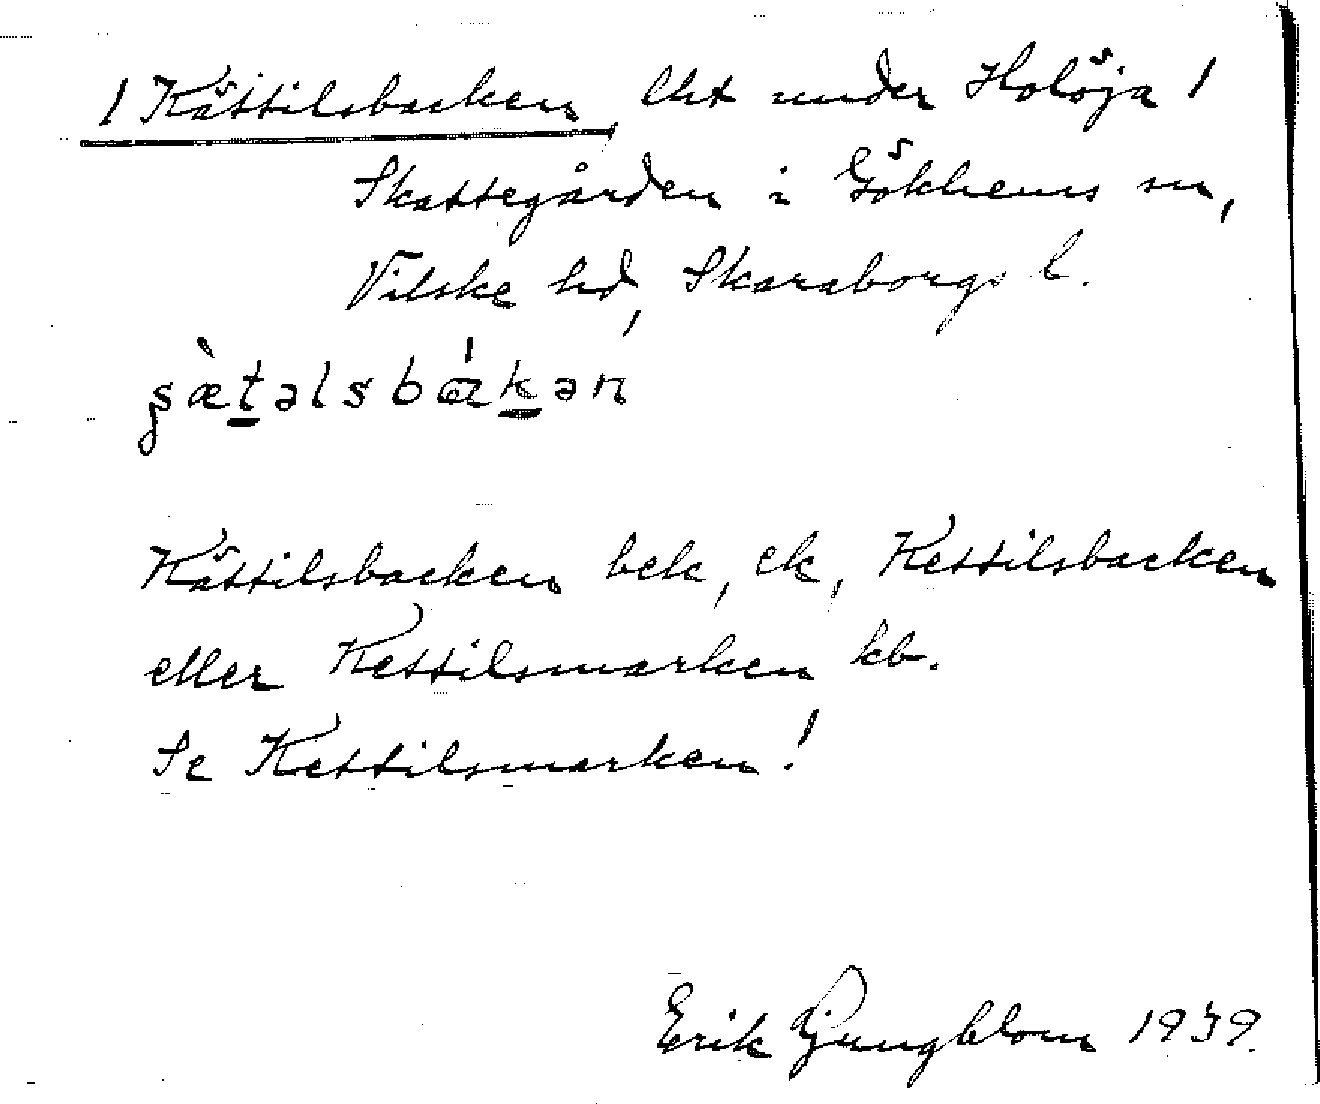 1 Kättilsbacken, lht under Holöja 1
Skattegården i Gökhems sn,
Vilske hd, Skaraborgs l.
s̨æ̀t̲əlsbák̲ən
Kättilsbacken bek, ek, Kettilsbacken
eller Kettilsmarken kb.
Se Kettilsmarken!
Erik Ljungblom 1939.